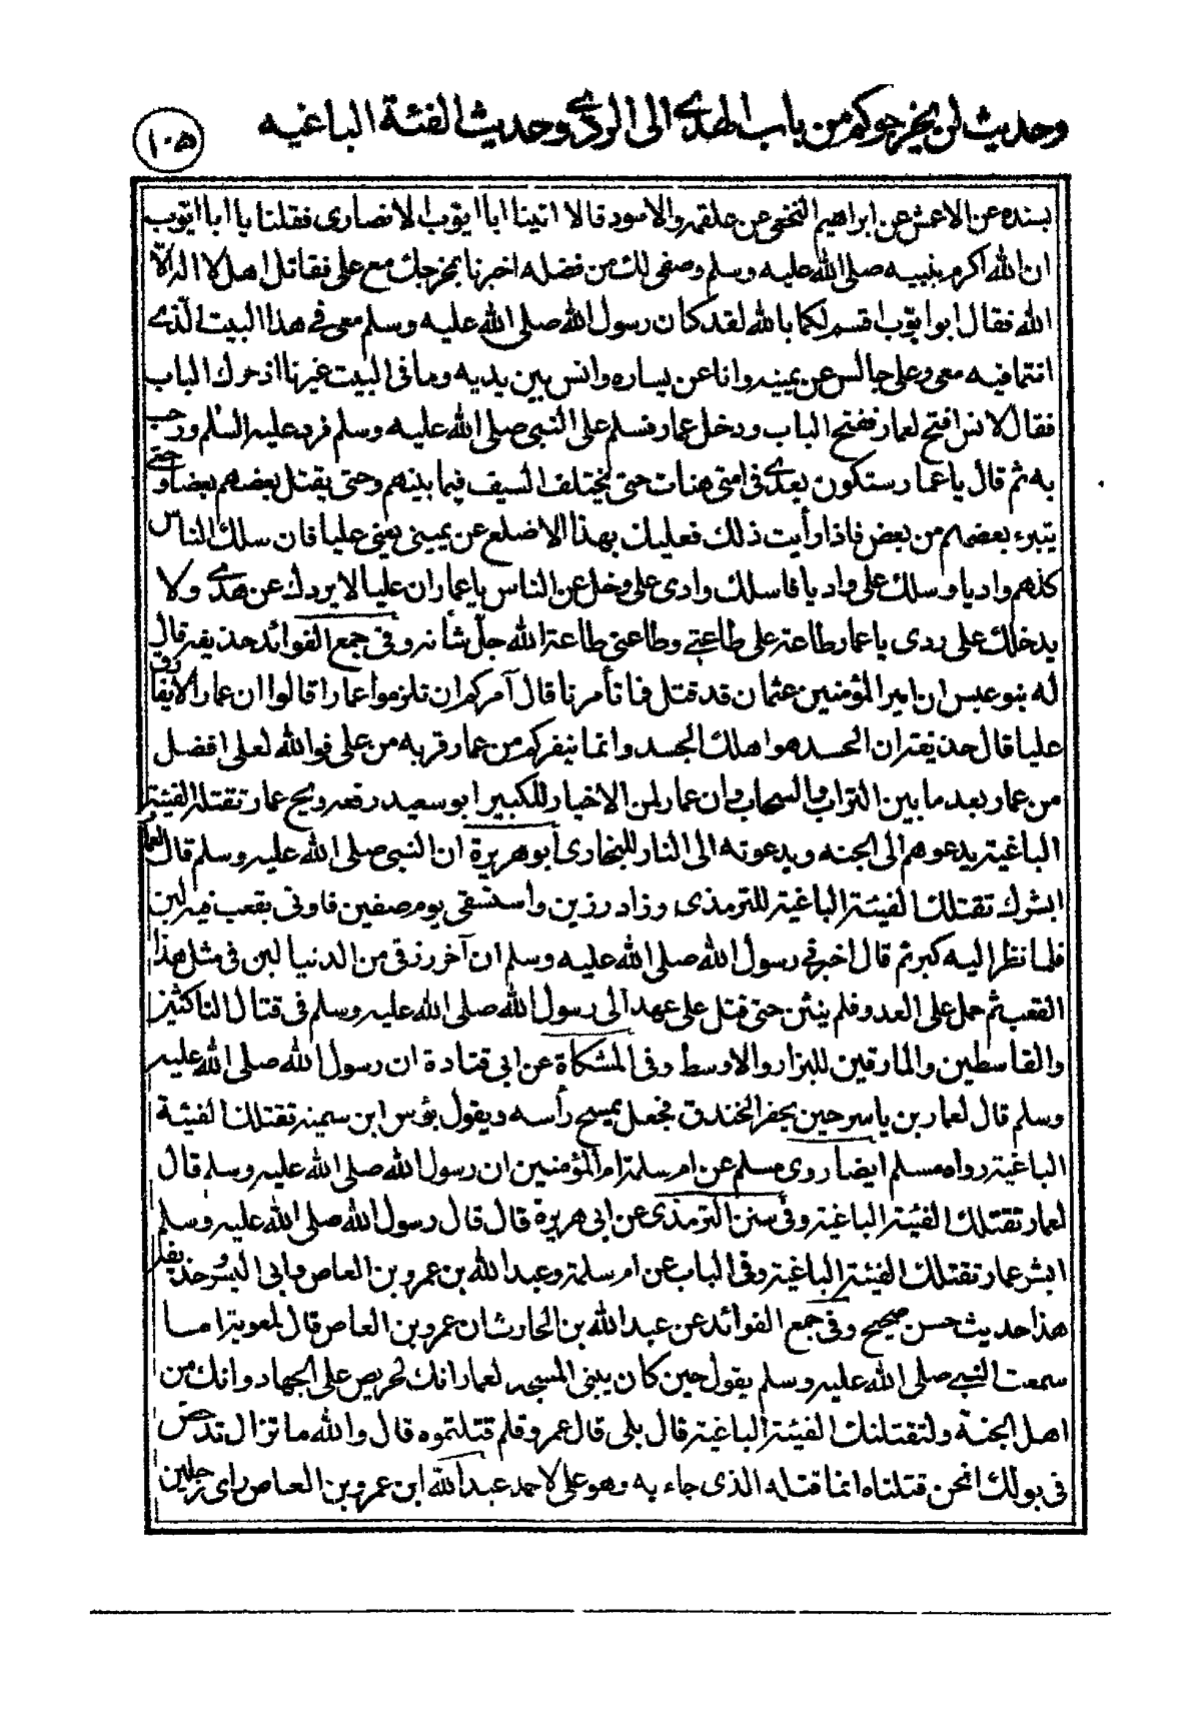 وحديث لن يخرجوكم من باب الهدى الى الردى وحديث الفئة الباغيه
١٠٥
بسنده عن الاعمش عن ابراهيم النخعى عن علقمه والاسود قالا اتينا ابا ايوب الانصارى فقلنا يا ابا ايوب
ان الله اكرم بنبيه صلى الله عليه وسلم وصفى لك من فضله اخبرنا بمخرجك مع على فقاتل اهل لا اله الا
الله فقال ابو ايوب اقسم لكما بالله لقد كان رسول الله صلى الله عليه وسلم معى فى هذا البيت الذى
انتما فيه معى وعلى جالس عن يمينه وانا عن يساره وانس بين يديه وما فى البيت غيرنا اذ حرك الباب
فقال لانس افتح لعمار ففتح الباب ودخل عمار فسلم على النبى صلى الله عليه وسلم فرد عليه السلم ورحب
به ثم قال يا عمار ستكون بعدى فى امتى هنات حتى يختلف السيف فيما بينهم وحتى يقتل بعضهم بعضا وحتى
يتبرء بعضهم من بعض فاذا رأيت ذلك فعليك بهذا الاضلع عن يمينى يعنى عليا فان سلك الناس
كلهم واديا وسلك على واديا فاسلك وادى على وخل عن الناس يا عمار ان عليا لا يردك عن هدى ولا
يدخلك على ردى يا عمار طاعة على طاعتى وطاعتى طاعة الله جل شأنه وفى جمع الفوائد حذيفة قال
له بنو عبس ان امير المؤمنين عثمان قد قتل فما تأمرنا قال آمركم ان تلزموا عمارا قالوا ان عمار لا يفارق
عليا قال حذيفة ان الحسد هو اهلك الجسد وانما ينفركم من عمار قربه من على فوالله لعلى افضل
من عمار بعد ما بين التراب والسحاب وان عمار لمن الاخيار للكبير ابو سعيد رفعه ويح عمار تقتله الفئية
الباغية يدعوهم الى الجنه ويدعونه الى النار للبخارى ابو هريرة ان النبى صلى الله عليه وسلم قال لعمار
ابشرك تقتلك الفيئة الباغية للترمذى وزاد رزين واستسقى يوم صفين فاوتى بقعب فيه لبن
فلما نظر اليه كبر ثم قال اخبرنى رسول الله صلى الله عليه وسلم ان آخر رزقى من الدنيا لبن فى مثل هذا
القعب ثم حمل على العدو فلم ينثن حتى قتل على عهد الى رسول الله صلى الله عليه وسلم فى قتال الناكثين
والقاسطين والمارقين للبزار والاوسط وفى المشكاة عن ابى قتادة ان رسول الله صلى الله عليه
وسلم قال لعمار بن ياسر حين يحفر الخندق فجعل يمسح رأسه ويقول بؤس ابن سمية تقتلك الفيئة
الباغية رواه مسلم ايضا روى مسلم عن ام سلمة ام المؤمنين ان رسول الله صلى الله عليه وسلم قال
لعمار تقتلك الفيئة الباغية وفى سنن الترمذى عن ابى هريرة قال قال رسول الله صلى الله عليه وسلم
ابشر عمار تقتلك الفيئة الباغية وفى الباب عن ام سلمة وعبد الله بن عمرو بن العاص وابى اليسر وحذيفة
هذا حديث حسن صحيح وفى جمع الفوائد عن عبد الله بن الحارث ان عمرو بن العاص قال لمعوية اما
سمعت النبى صلى الله عليه وسلم يقول حين كان يبنى المسجد لعمار انك لحريص على الجهاد وانك من
اهل الجنة ولتقتلنك الفيئة الباغية قال بلى قال عمرو فلم قتلتموه قال والله ما تزال تدحض
فى بولك انحن قتلناه انما قتله الذى جاء به وهو على لاحمد عبد الله ابن عمرو بن العاص راى رجلين